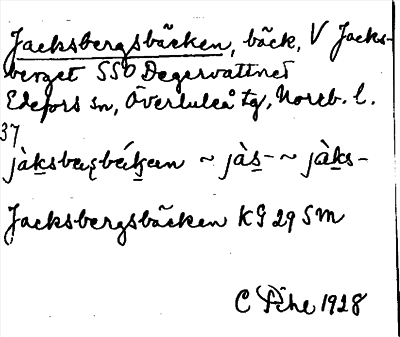 Jacksbergsbäcken, bäck, V Jacks-
berget SSO Degervattnet
Edefors sn, Överluleå tg, Norrb. l.
37
jàksbæs̨bǽk̮æn ~ jàs̱- ~ jàḵs-
Jacksbergsbäcken KG 29 SM
C Pihe 1928